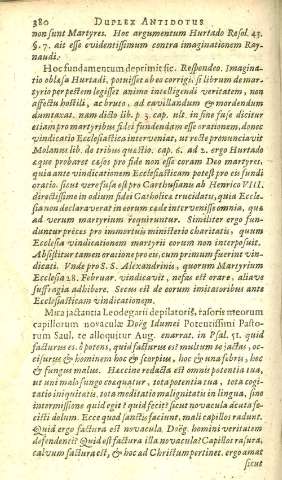 380 DUPLEX ANTIDOTUS
non sunt Martyres. Hoc argumentum Hurtado Resol. 43.
§. 7. ait esse evidentissimum contra imaginationem Ray-
naudi.
Hoc fundamentum deprimit sic. Respondeo. Imagina-
tio oblæsa Hurtadi, potuisset ab eo corrigi, si librum de mar-
tyrio per pestem legisset animo intelligendi veritatem, non
affectu hostili, ac bruto, ad cavillandum & mordendum
duntaxat. nam dicto lib. p. 3. cap. ult. in fine fuse dicitur
etiam pro martyribus fidei fundendam esse orationem, donec
vindicatio Ecclesiastica interveniat, ut recte pronunciavit
Molanus lib. de tribus cap. 6. ad 2. ergo Hurtado
æque probaret cæsos pro fide non esse coram Deo martyres,
quia ante vindicationem Ecclesiasticam potest pro eis fundi
oratio. sicut vere fusa est pro Carthusianis ab Henrico VIII.
directissime in odium fidei Catholicæ trucidatis, quia Eccle-
sia non declaraverat in eorum cæde intervenisse omnia, quæ
ad verum martyrium requiruntur. Similiter ergo fun-
duntur preces pro immortuis ministerio charitatis, quum
Ecclesia vindicationem martyrii eorum non interposuit.
Absistitur tamen oratione pro eis, cum primum fuerint vin-
dicati. Unde pro S. S. Alexandrinis, quorum Martyrium
Ecclesia 28. Februar. vindicavit, nefas est orare, aut ava
suffragia adhibere. Secus est de eorum imitatoribus ante
Ecclesiasticam vindicationem.
Mira jactantia Leodegarii depilatoris, rasoris meorum
capillorum novaculæ Doëg Idumei Potentissimi Pasto-
rum Saul. te alloquitur Aug. enarrat. in Psal. 51. quid
facturus es, ô potens, quid facturus es? multum se jactas, oc-
cisurus es hominem hoc & scorpius, hoc & una febris, hoc
& fungus malus. Haccine redacta est omnis potentia tua,
ut uni malo fungo coæquatur, tota potentia tua, tota cogi-
tatio iniquitatis, tota meditatio malignitatis in lingua, sino
intermissione quid egit? quid fecit? sicut novacula acuta fe-
cisti dolum. Ecce quod sanctis faciunt, mali capillos radunt.
Quid ergo factura es novacula. Doëg. hominis veritatem
defendentis? Quid est factura illa novacula? Capillos rasura,
calvum factura est, & hoc ad Christum pertinet. ergo amat
sicut